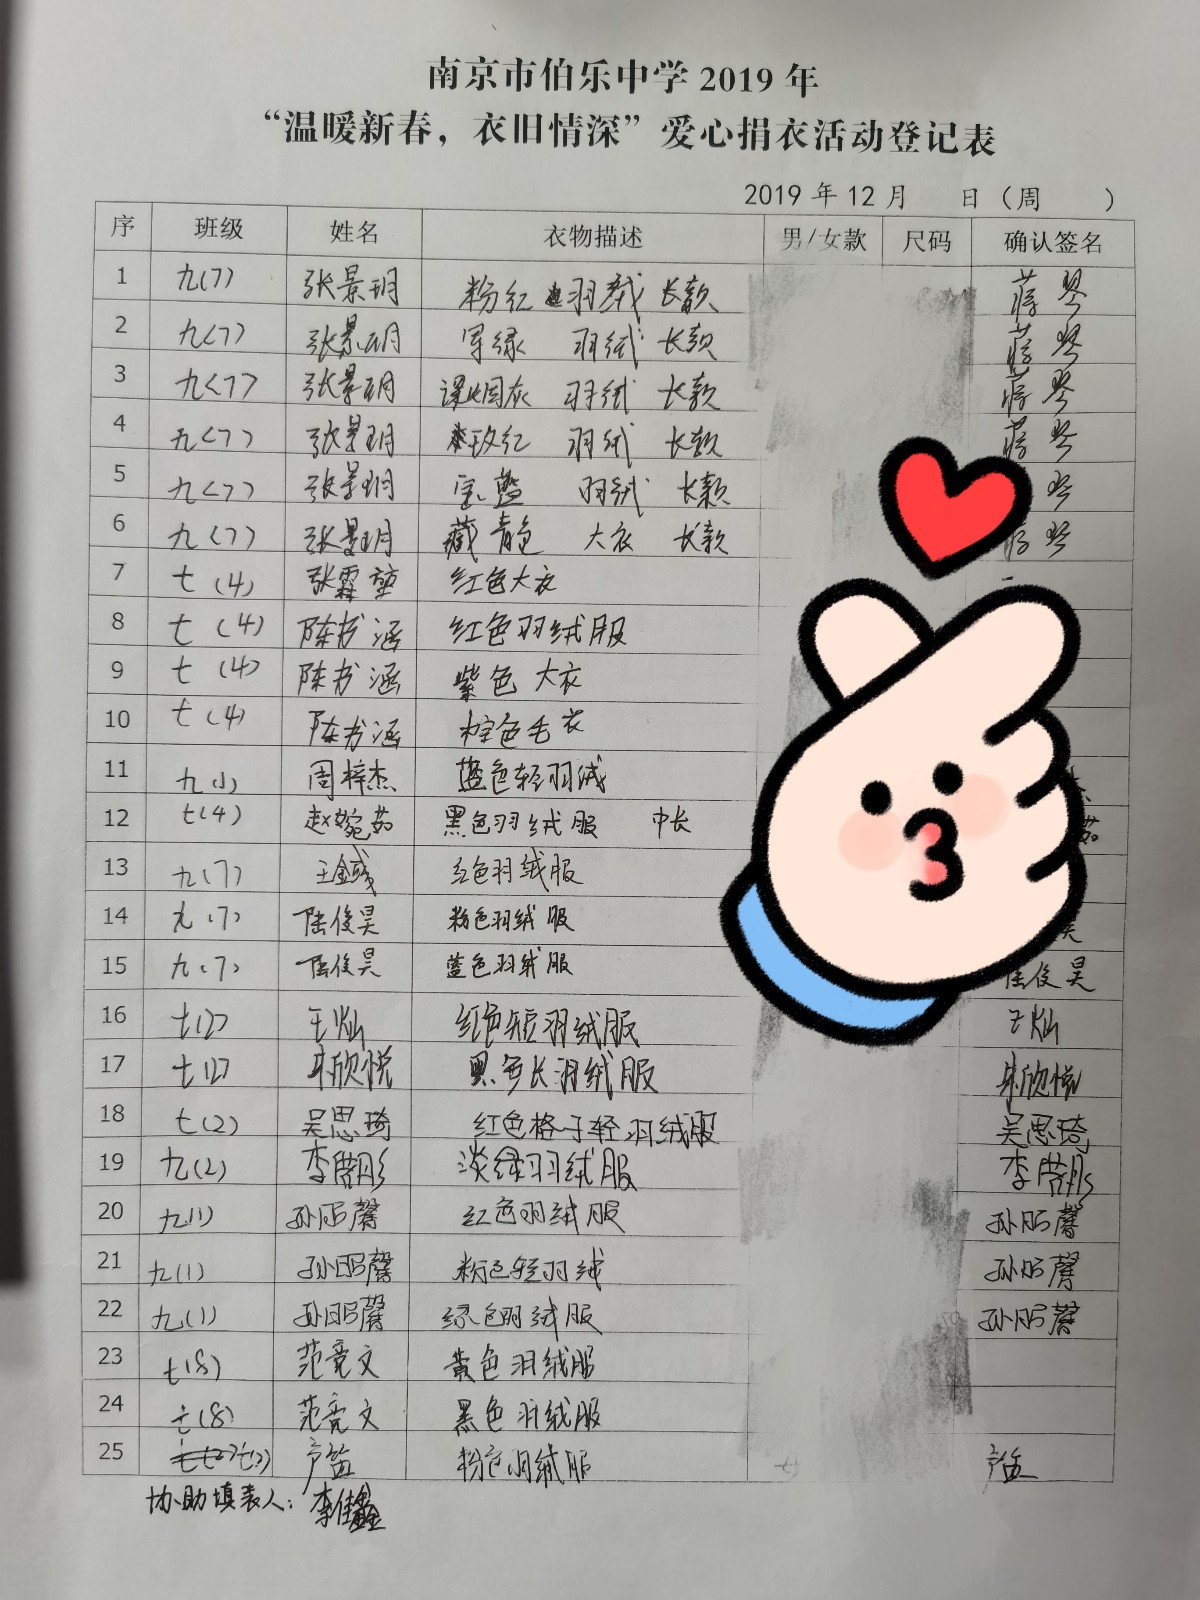 南京市伯乐中学 2019 年
“温暖新春，衣旧情深”爱心捐衣活动登记表
2019 年 12 月 日（周 ）
序 班级 姓名 衣物描述 男/女款 尺码 确认签名
1 九(7) 张景玥 粉红 羽绒 长款 蒋琴
2 九(7) 张景玥 军绿 羽绒 长款 蒋琴
3 九(7) 张景玥 深烟灰 羽绒 长款 蒋琴
4 九(7) 张景玥 玫红 羽绒 长款 蒋琴
5 九(7) 张景玥 宝蓝 羽绒 长款 琴
6 九(7) 张景玥 藏青色 大衣 长款 蒋琴
7 七(4) 张霖堃 红色大衣
8 七(4) 陈书涵 红色羽绒服
9 七(4) 陈书涵 紫色 大衣
10 七(4) 陈书涵 棕色毛衣
11 九(1) 周梓杰 蓝色轻羽绒
12 七(4) 赵婉茹 黑色羽绒服 中长 茹
13 九(7) 王金彧 红色羽绒服
14 九(7) 陆俊昊 粉色羽绒服 昊
15 九(7) 陆俊昊 蓝色羽绒服 陆俊昊
16 七(2) 王灿 红色短羽绒服 王灿
17 七(2) 朱欣悦 黑色长羽绒服 朱欣悦
18 七(2) 吴思琦 红色格子轻羽绒服 吴思琦
19 九(2) 李 彤 淡绿羽绒服 李 彤
20 九(1) 孙昭馨 红色羽绒服 孙昭馨
21 九(1) 孙昭馨 粉色轻羽绒 孙昭馨
22 九(1) 孙昭馨 绿色羽绒服 孙昭馨
23 七(8) 范竞文 黄色羽绒服
24 七(8) 范竞文 黑色羽绒服
25 七(2) 粉色羽绒服
协助填表人：李佳鑫